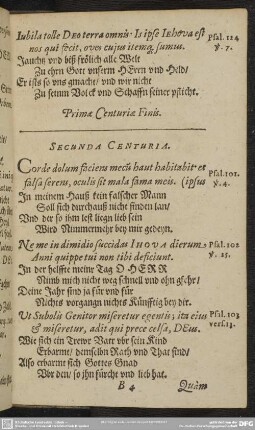 Iubila tolle DEO terra omnis: Is ipse IEhova est Psal. 124.
nos qui fecit, oves cujus itemq; sumus. ℣. 7.
Jauchtz und biß frölich alle Welt
Zu ehrn Gott unserm HErrn und Held/
Er ists so uns gmacht/ und wir nicht
Zu seinm Volck und Schaffn seiner pflicht.
Primæ Centuriæ Finis.
SECUNDA CENTURIA.
Corde dolum faciens mecū haut habitabit et Psal. 101.
falsa serens, oculis sit mala fama meis. (ipsus ℣. 4.
In meinem Hauß kein falscher Mann
Soll sich durchauß nicht finden lan/
Und der so ihm lest liegn lieb sein
Wird Nimmermehr bey mir gedeyn.
Ne me in dimidio succidas IHOVA dierum, Psal. 102
Anni quippe tui non tibi deficiunt. ℣. 25.
In der helffte meine Tag O HERR
Nimb mich nicht weg schnell und ohn gfehr/
Deine Jahr sind ja für und für
Nichts vorgangn nichts Künfftig bey dir.
Ut Subolis Genitor miseretur egentis, ita eius Psal. 103
& miseretur, adit qui prece celsa, DEus. vers. 13.
Wie sich ein Trewr Vatr vbr sein Kind
Erbarmt/ demselbn Rath und That find/
Also erbarmt sich Gottes Gnad
Vor den/ so ihn fürcht und lieb hat.
B 4 Quàm